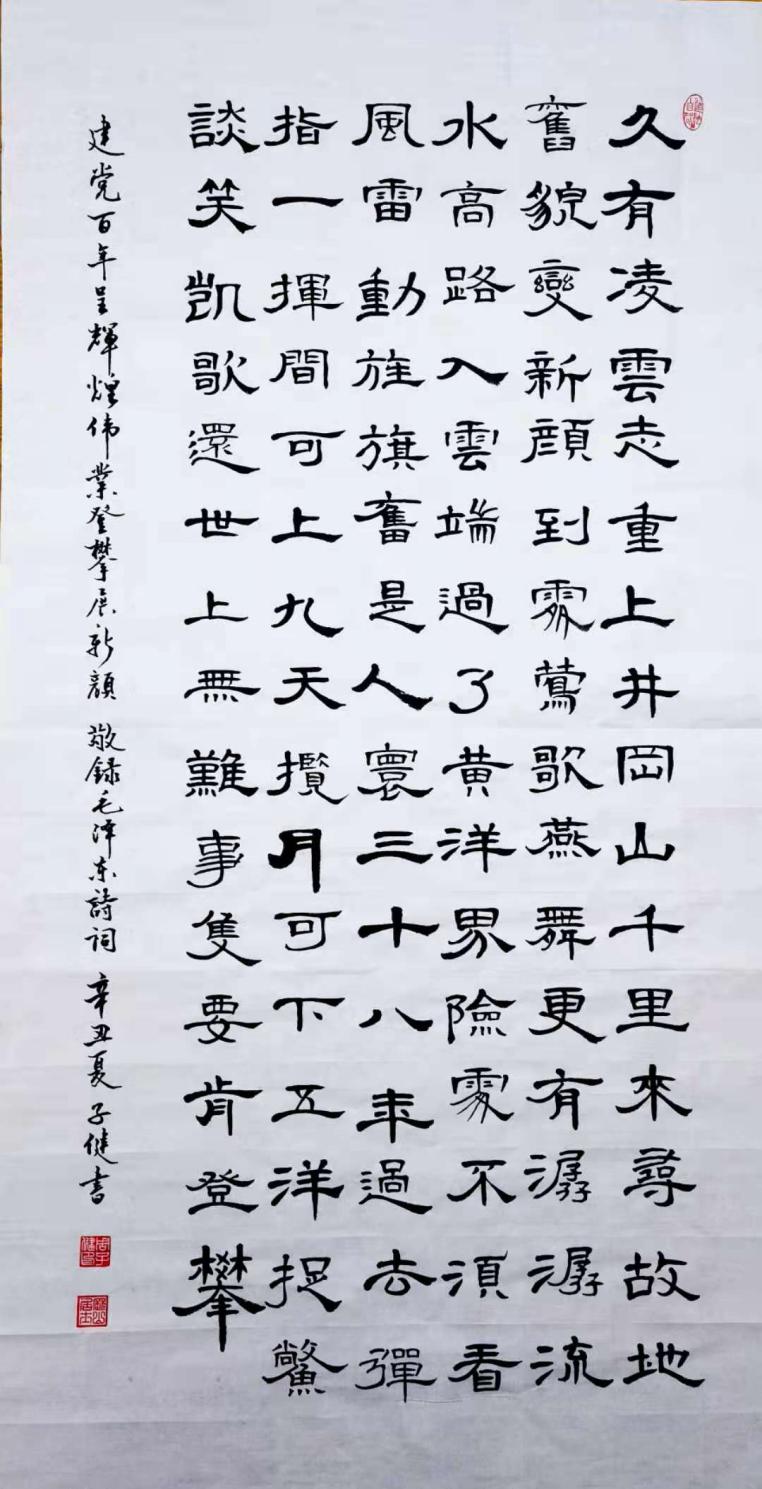 久有凌雲志重上井岡山千里來尋故地
舊貌變新顔到處鶯歌燕舞更有潺潺流
水高路入雲端過了黄洋界險處不須看
風雷動旌旗奮是人寰三十八年過去彈
指一揮間可上九天攬月可下五洋捉鱉
談笑凱歌還世上無難事隻要肯登攀
建党百年呈輝煌伟業登攀展新顔 敬録毛泽东詩词 辛丑夏 子健書